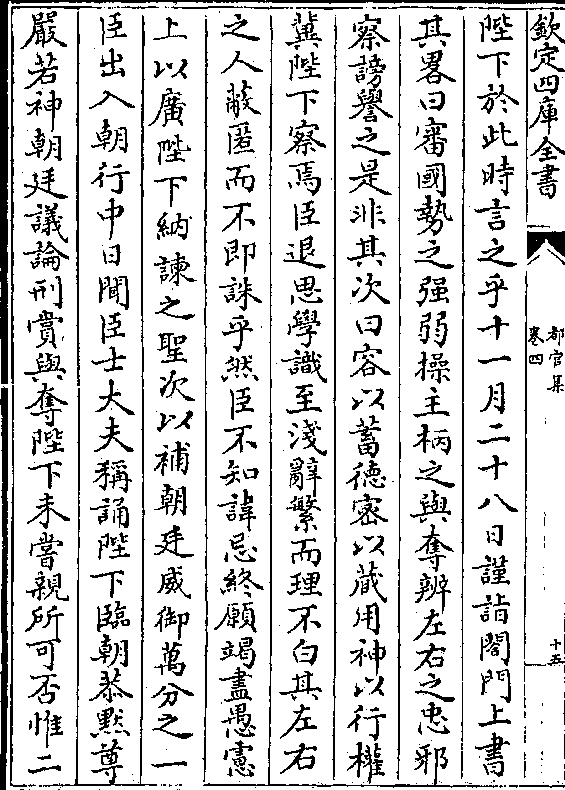 欽定四庫全書
都官集
卷四
十五
陛下於此時言之乎十一月二十八日謹詣閤門上書
其畧曰審國勢之强弱操主柄之與奪辨左右之忠邪
察謗譽之是非其次曰容以蓄德密以藏用神以行權
冀陛下察焉臣退思學識至淺辭繁而理不白其左右
之人蔽匿而不即誅乎然臣不知諱忌終願竭盡愚慮
上以廣陛下納諫之聖次以補朝廷威御萬分之一
臣出入朝行中日聞臣士大夫稱誦陛下臨朝恭默尊
嚴若神朝廷議論刑賞與奪陛下未嘗親所可否惟二